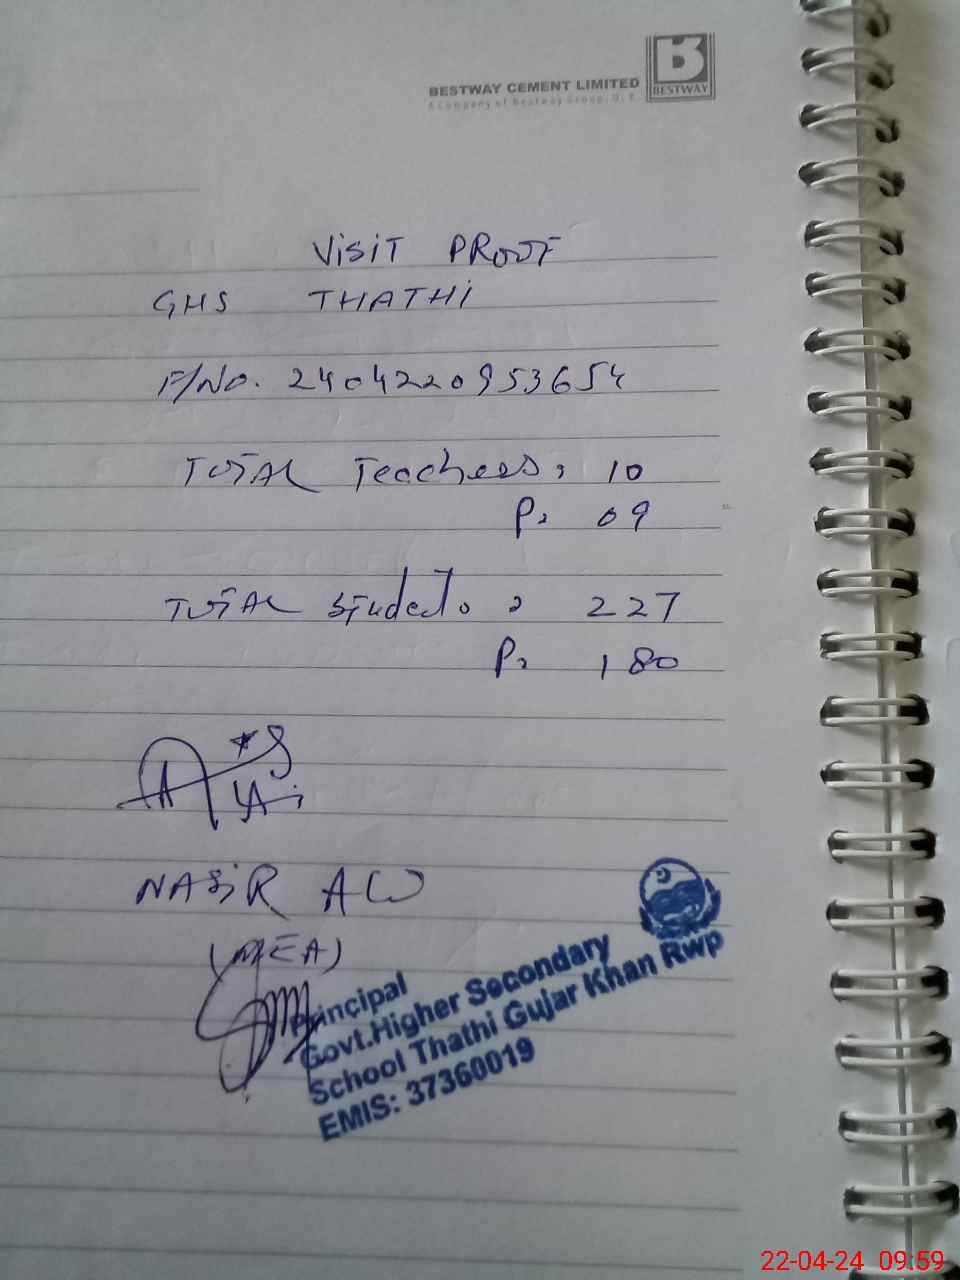 BESTWAY CEMENT LIMITED
A Company of Bestway Group, U. K.
B
BESTWAY
VISIT PROOF
GHS THATHI
F/No. 2404220953654
TOTAL Teachers: 10
P: 09
TOTAL Students : 227
P: 180
NASIR ALI
(MEA)
Principal
Govt.Higher Secondary
School Thathi Gujar Khan Rwp
EMIS: 37360019
22-04-24 09:59